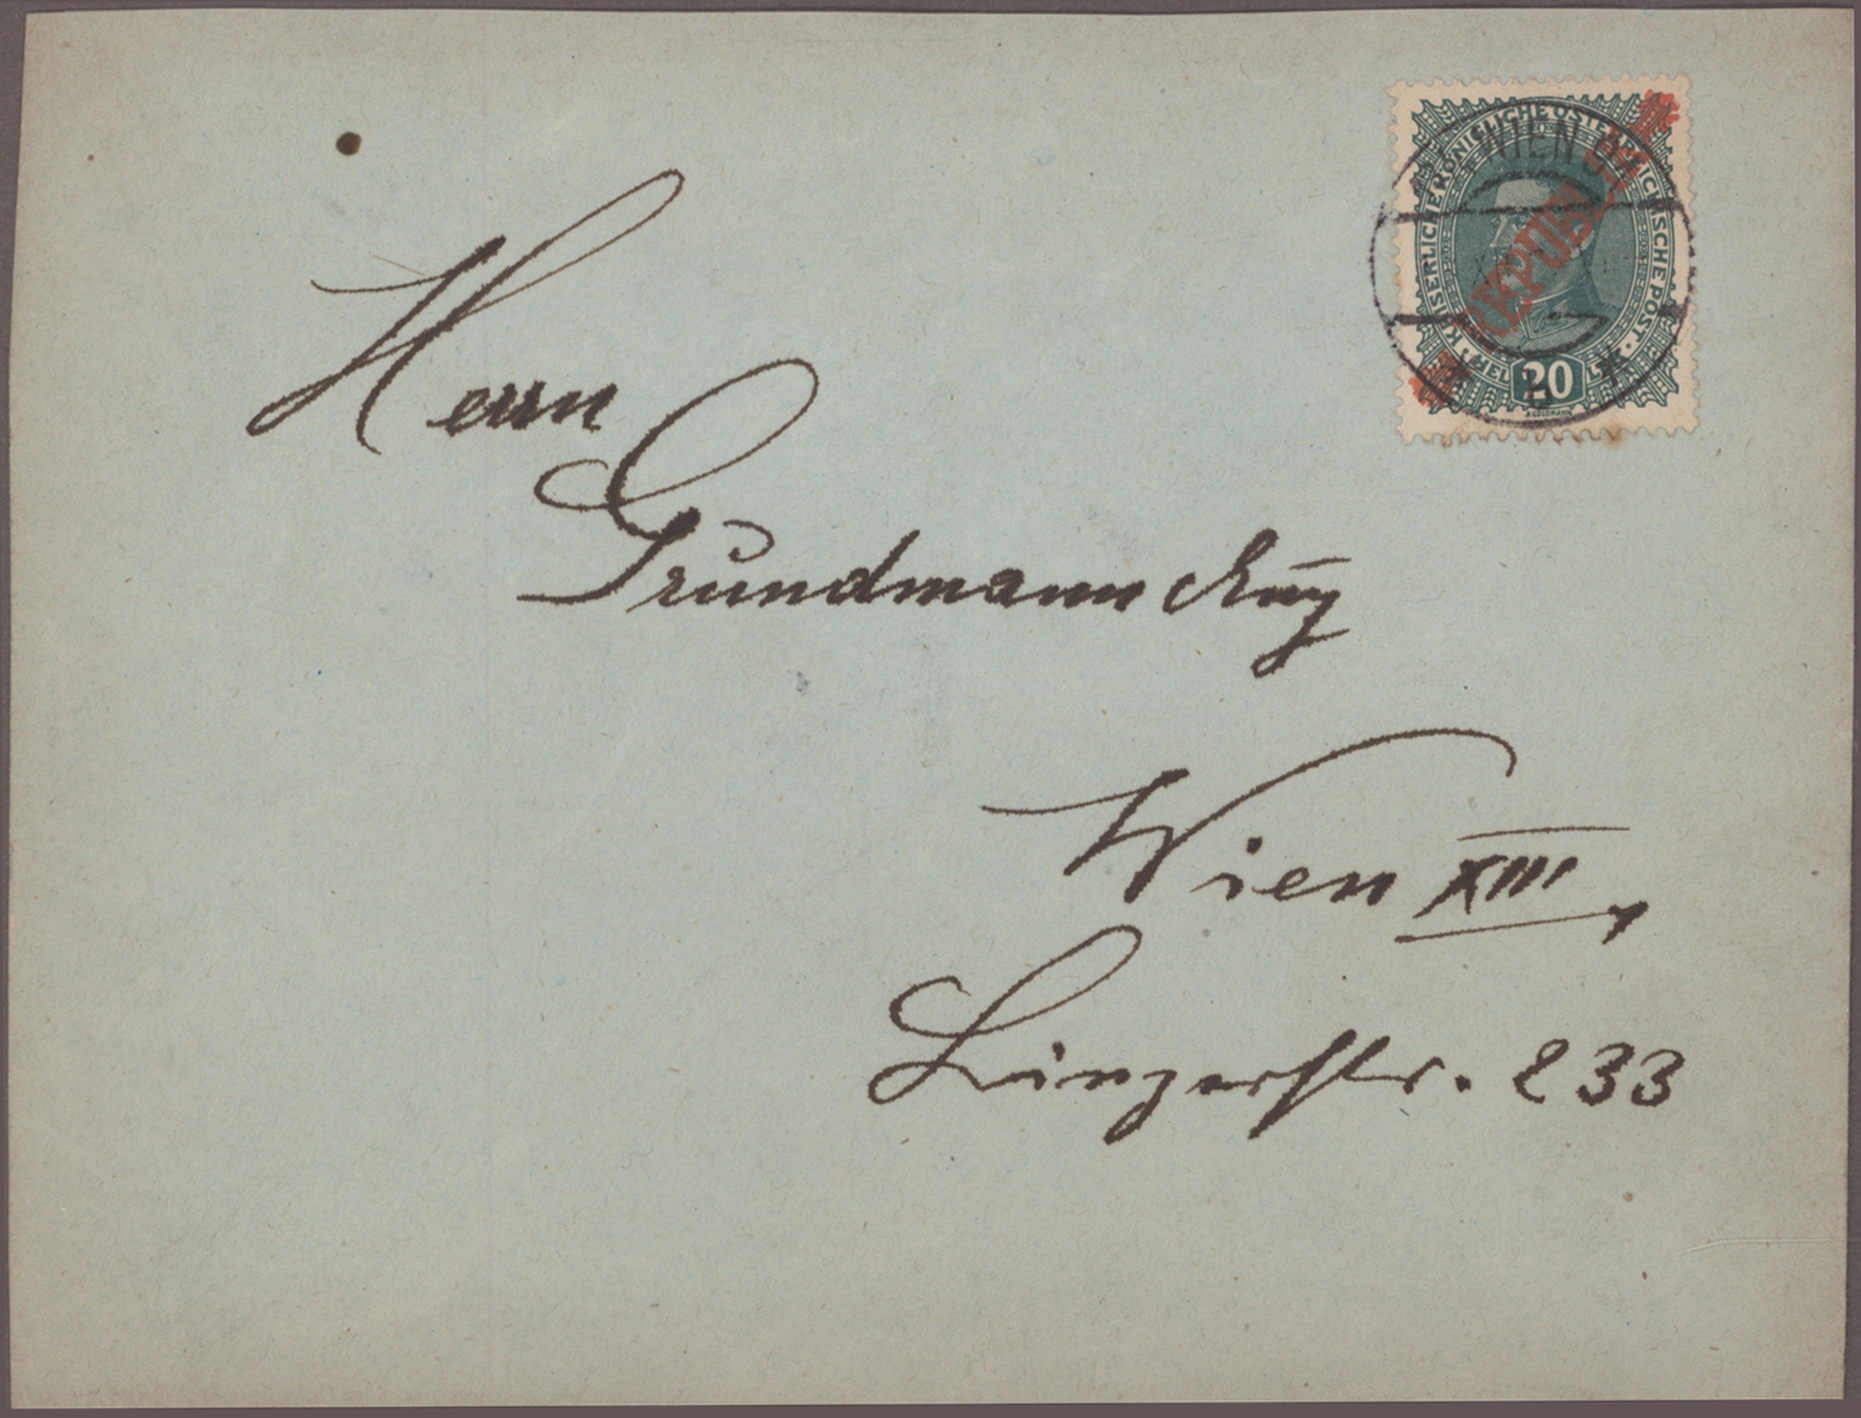 KAISERLICHE KÖNIGLICHE ÖSTERREICHISCHE POST
WIEN
REPUBLIK
20
Herrn
Grundmann
Wien XIII,
Linzerstr. 233